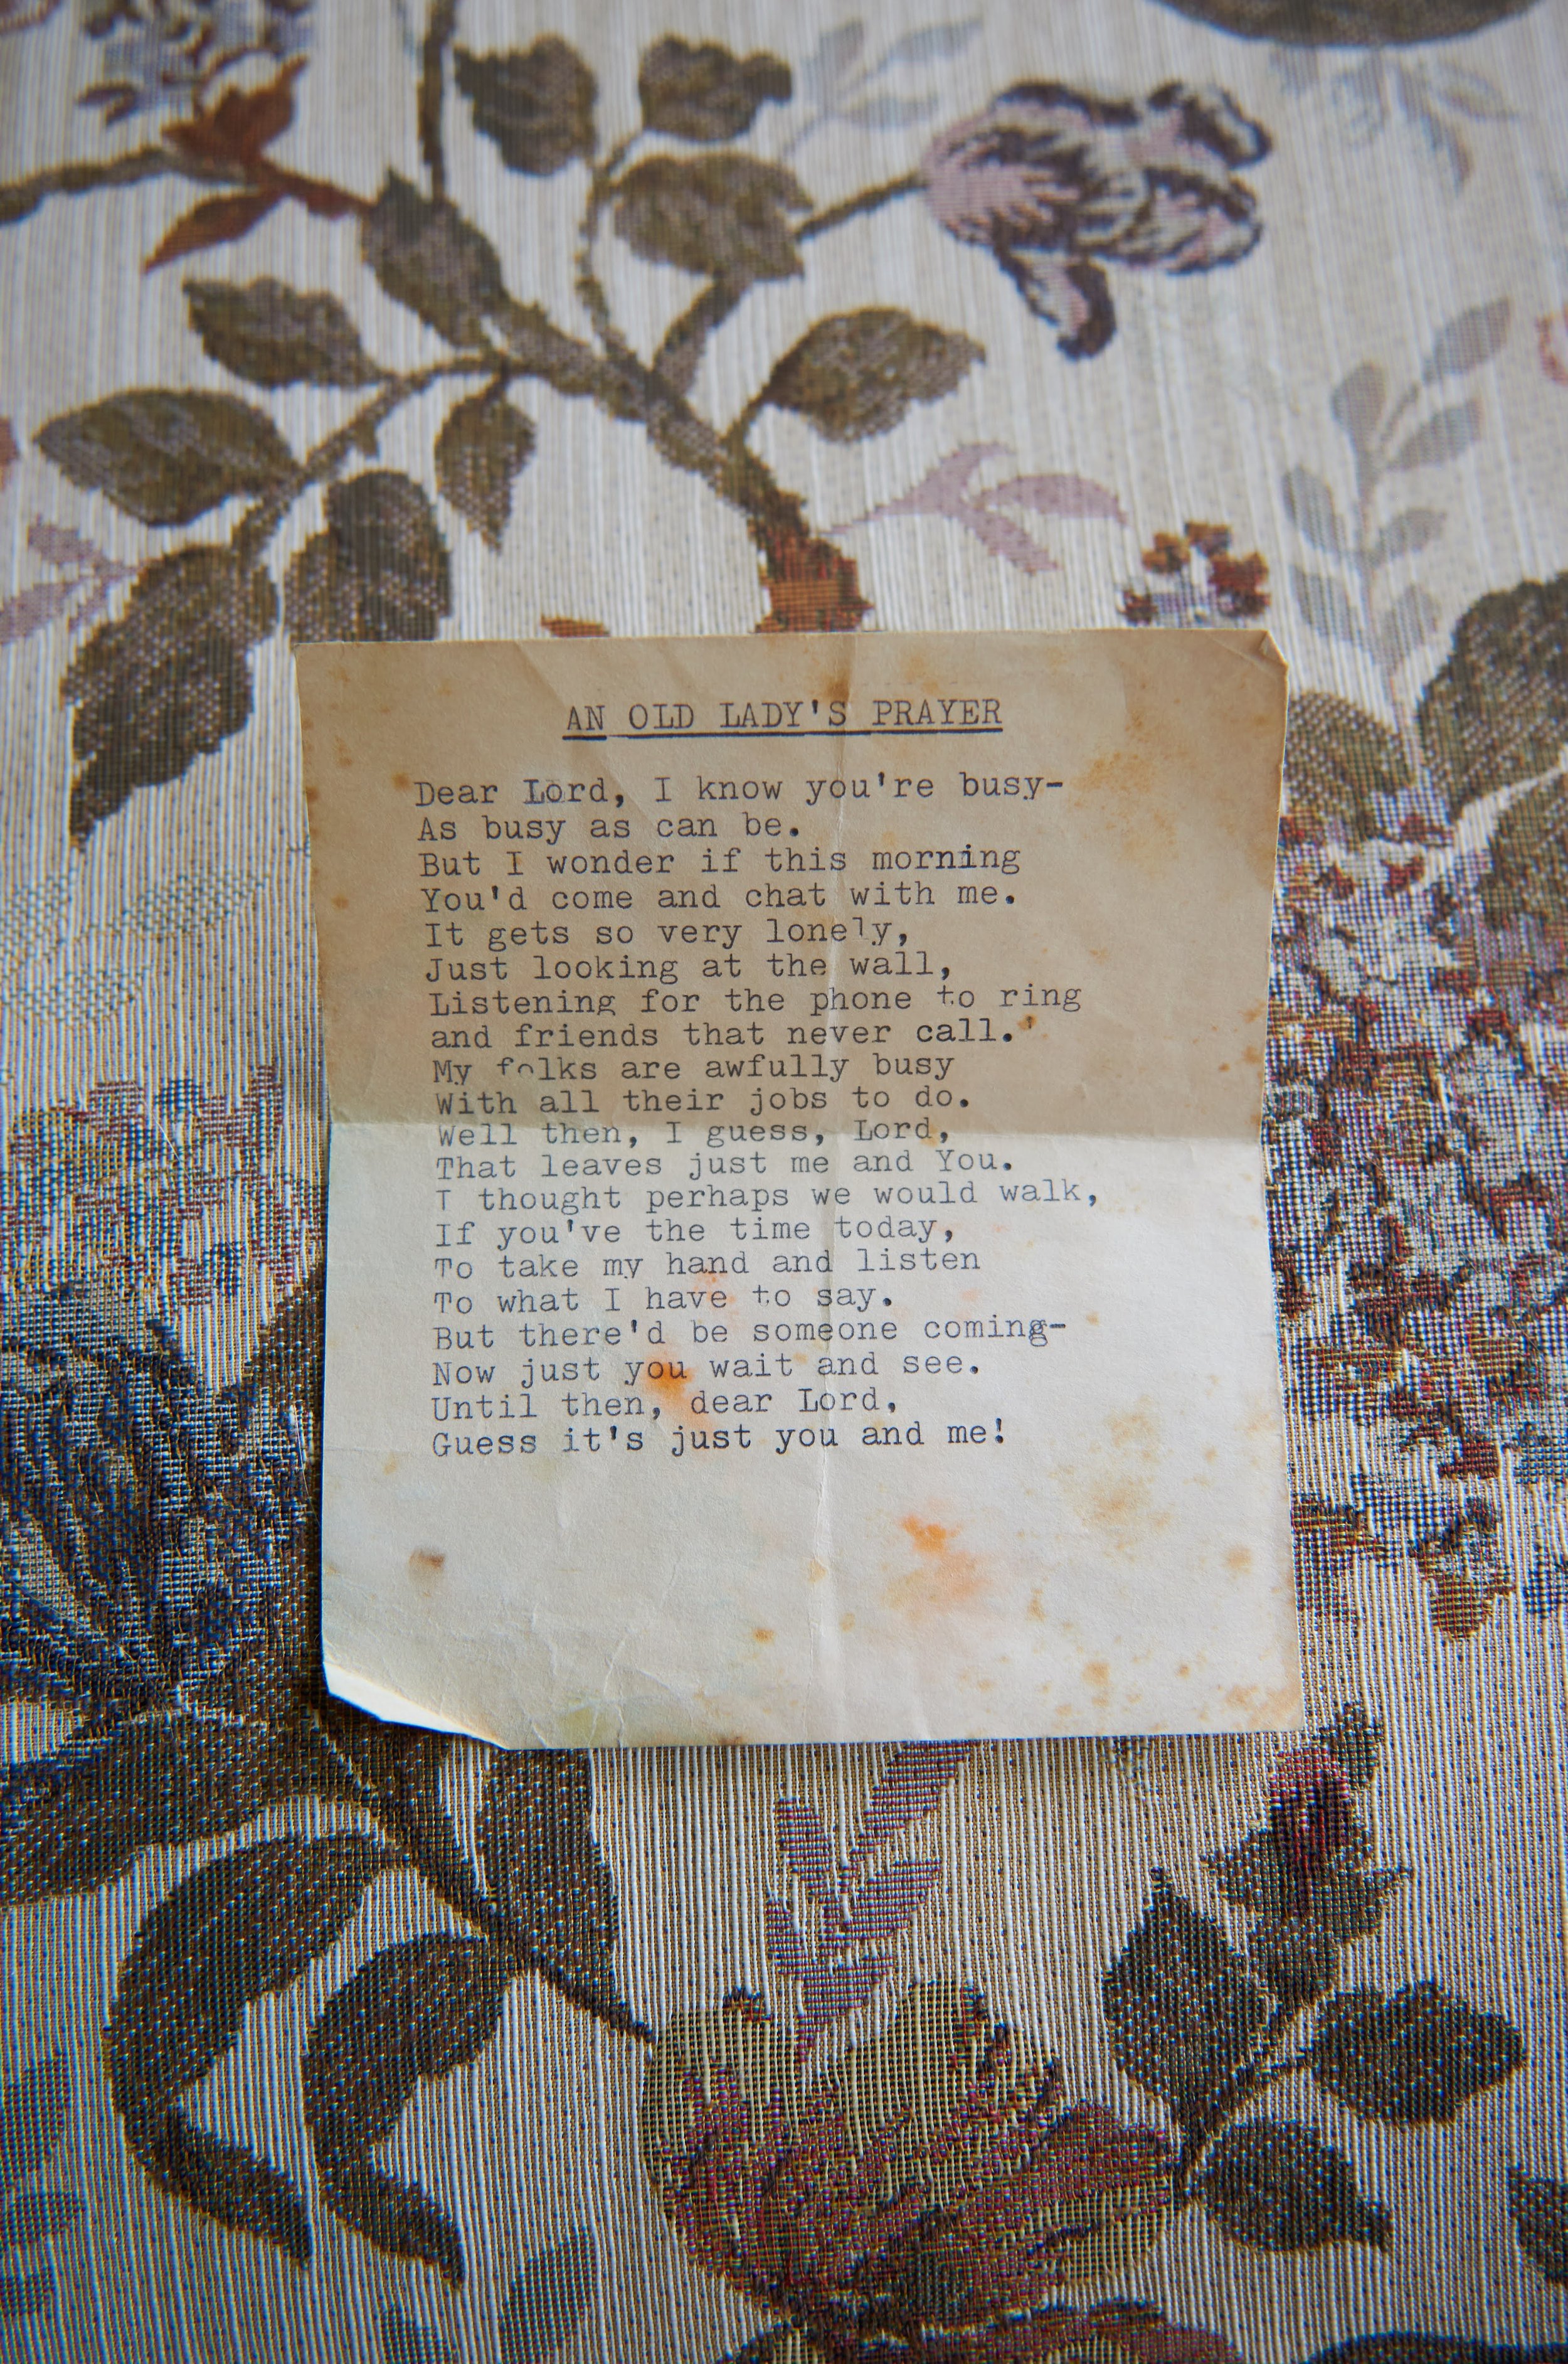 AN OLD LADY'S PRAYER
Dear Lord, I know you're busy-
As busy as can be.
But I wonder if this morning
You'd come and chat with me.
It gets so very lonely,
Just looking at the wall,
Listening for the phone to ring
and friends that never call.'
My folks are awfully busy
With all their jobs to do.
Well then, I guess, Lord,
That leaves just me and You.
I thought perhaps we would walk,
If you've the time today,
To take my hand and listen
To what I have to say.
But there'd be someone coming-
Now just you wait and see.
Until then, dear Lord,
Guess it's just you and me!